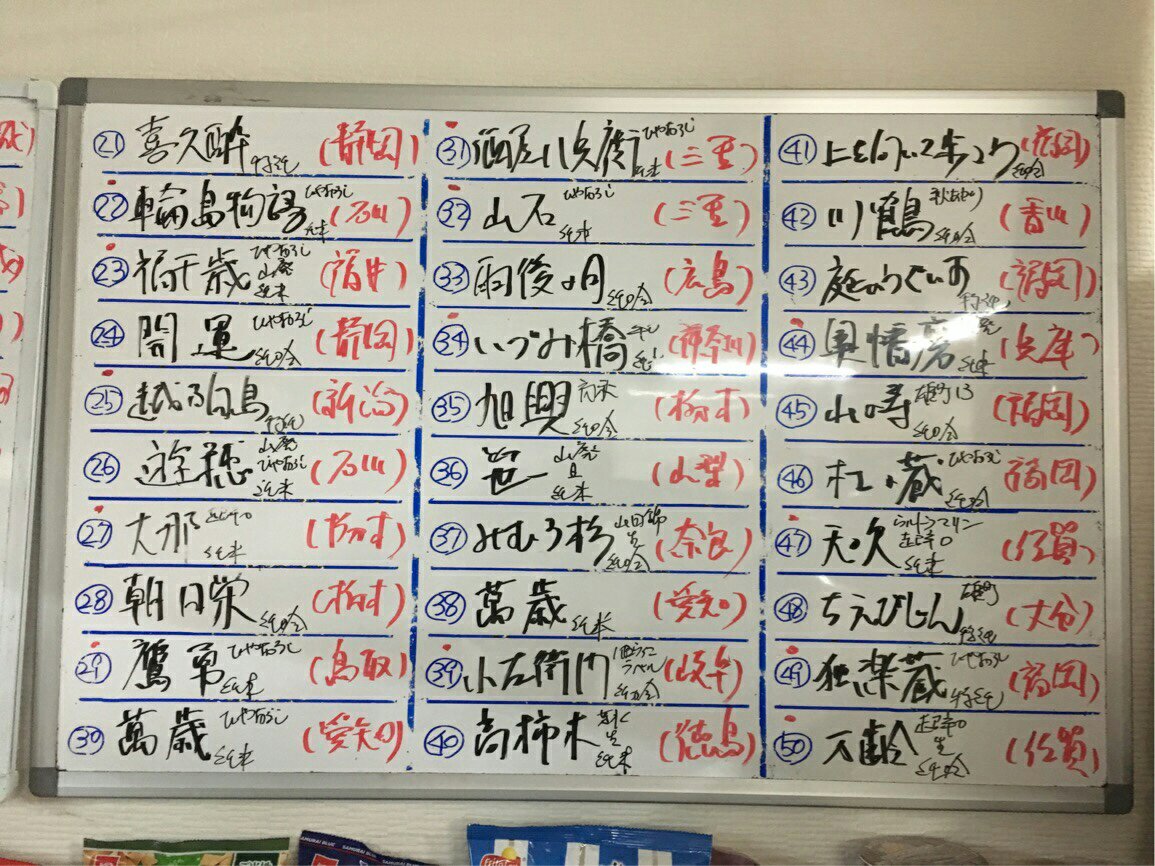 ㉑ 喜久酔 特純 (静岡)
㉒ 輪島物語 ひやおろし 純米 (石川)
㉓ 福千歳 ひやおろし 山廃 純米 (福井)
㉔ 開運 ひやおろし 純吟 (静岡)
㉕ 越乃白鳥 特純 (新潟)
㉖ 遊穂 山廃 ひやおろし 純米 (石川)
㉗ 大那 純米 (栃木)
㉘ 朝日栄 純吟 (栃木)
㉙ 鷹勇 ひやおろし 純米 (鳥取)
㉚ 萬歳 ひやおろし 純米 (愛知)
㉛ 酒屋八兵衛 ひやおろし 純米 (三重)
㉜ 山石 ひやおろし 純米 (三重)
㉝ 雨後の月 純吟 (広島)
㉞ いづみ橋 (神奈川)
㉟ 旭興 純吟 (栃木)
㊱ 笹一 山廃 純米 (山梨)
㊲ みむろ杉 山田錦 生 純吟 (奈良)
㊳ 萬歳 純米 (愛知)
㊴ 小左衛門 純吟 (岐阜)
㊵ 高柿木 生 純米 (徳島)
㊶ 上を向いて歩こう 純吟 (福岡)
㊷ 川鶴 秋あがり 純吟 (香川)
㊸ 庭のうぐいす 特純 (福岡)
㊹ 奥播磨 純米 (兵庫)
㊺ 山の寿 雄町 純吟 (福岡)
㊻ 杜の蔵 ひやおろし 純吟 (福岡)
㊼ 天吹 超辛口 純米 (佐賀)
㊽ ちえびじん 雄町 特純 (大分)
㊾ 独楽蔵 ひやおろし 特純 (福岡)
㊿ 万齢 超辛口 生 純吟 (佐賀)
SAMURAI BLUE